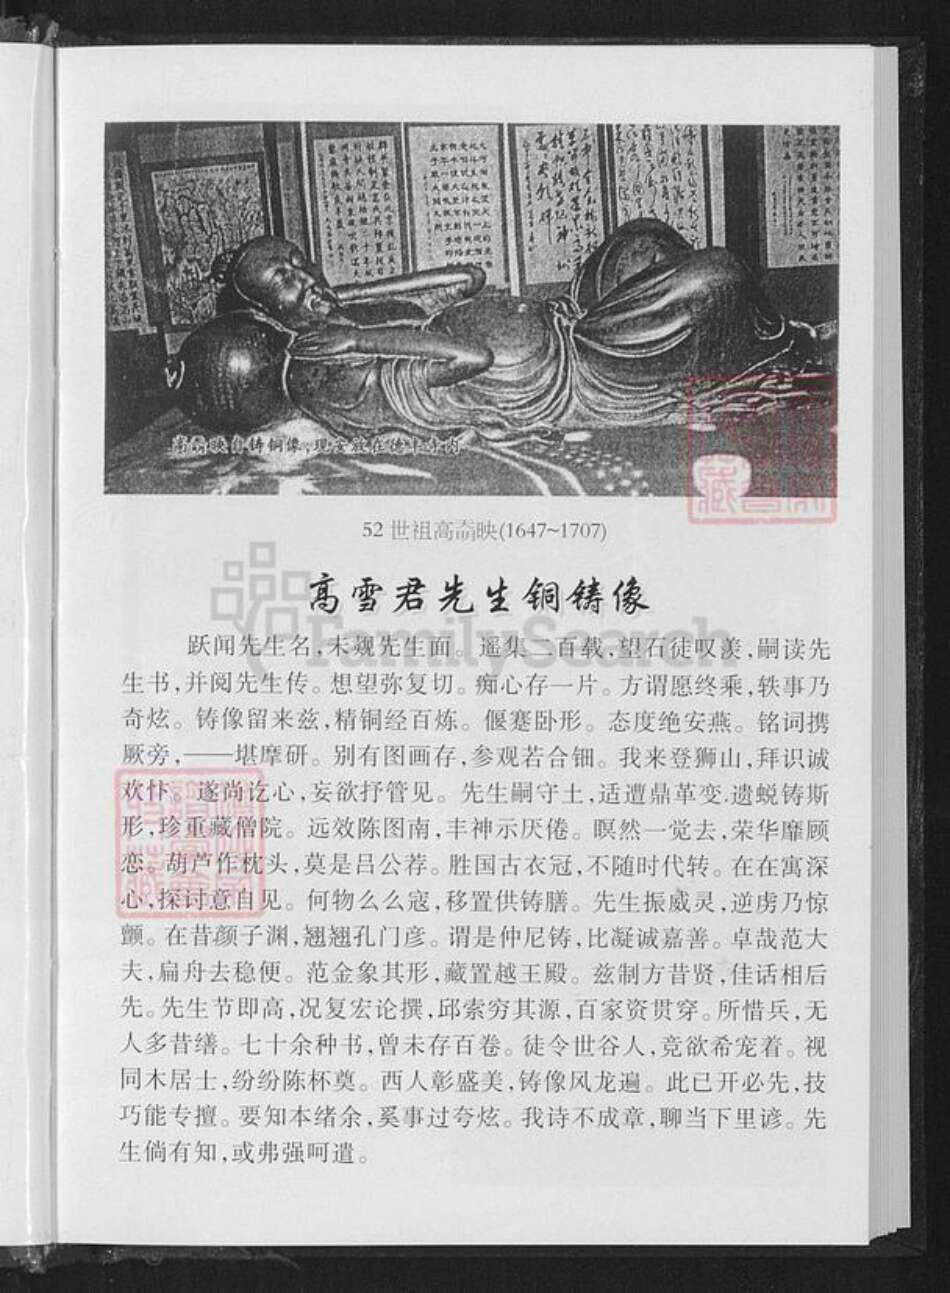 高奣映自铸铜像,现安放在德丰寺内
52 世祖高奣映(1647~1707)
高雪君先生铜铸像
跃闻先生名,未觌先生面。遥集二百载,望石徒叹羡,嗣读先
生书,并阅先生传。想望弥复切。痴心存一片。方谓愿终乘,轶事乃
奇炫。铸像留来兹,精铜经百炼。偃蹇卧形。态度绝安燕。铭词携
厥旁,——堪摩研。别有图画存,参观若合钿。我来登狮山,拜识诚
欢忭。遂尚讫心,妄欲抒管见。先生嗣守土,适遭鼎革变.遗蜕铸斯
形,珍重藏僧院。远效陈图南,丰神示厌倦。瞑然一觉去,荣华靡顾
恋。葫芦作枕头,莫是吕公荐。胜国古衣冠,不随时代转。在在寓深
心,探讨意自见。何物么么寇,移置供铸膳。先生振威灵,逆虏乃惊
颤。在昔颜子渊,翘翘孔门彦。谓是仲尼铸,比凝诚嘉善。卓哉范大
夫,扁舟去稳便。范金象其形,藏置越王殿。兹制方昔贤,佳话相后
先。先生节即高,况复宏论撰,邱索穷其源,百家资贯穿。所惜兵,无
人多昔缮。七十余种书,曾未存百卷。徒令世谷人,竞欲希宠着。视
同木居士,纷纷陈杯奠。西人彰盛美,铸像风龙遍。此已开必先,技
巧能专擅。要知本绪余,奚事过夸炫。我诗不成章,聊当下里谚。先
生倘有知,或弗强呵遣。
FamilySearch